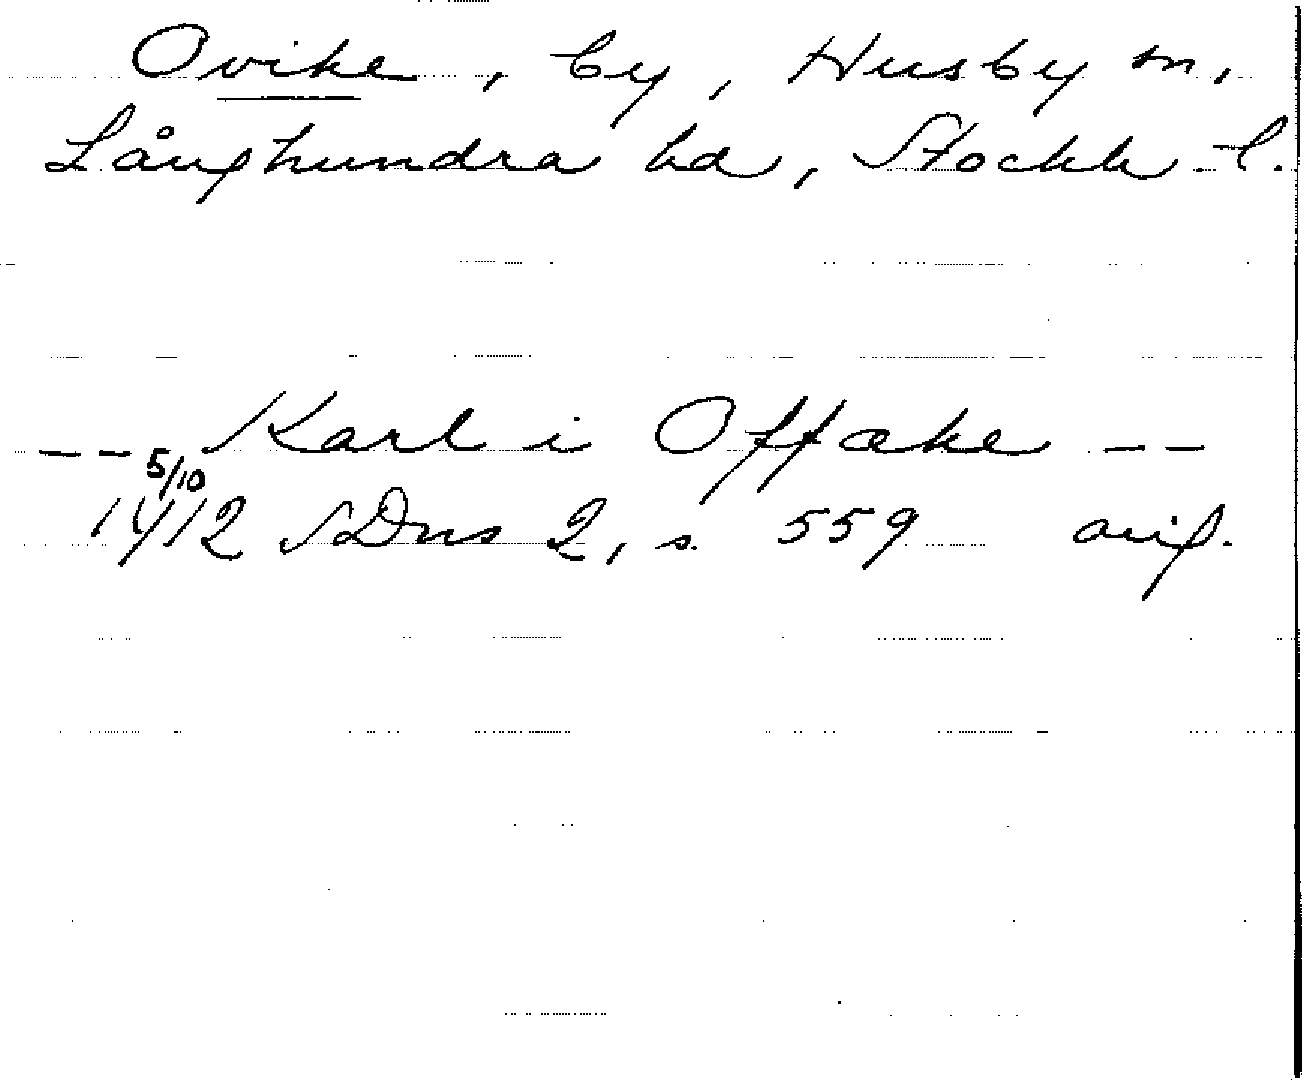 Ovike, by, Husby sn,
Långhundra hd, Stockh l.
-- Karl i Offake --
5/10
1412 SDns 2, s. 559 avif.